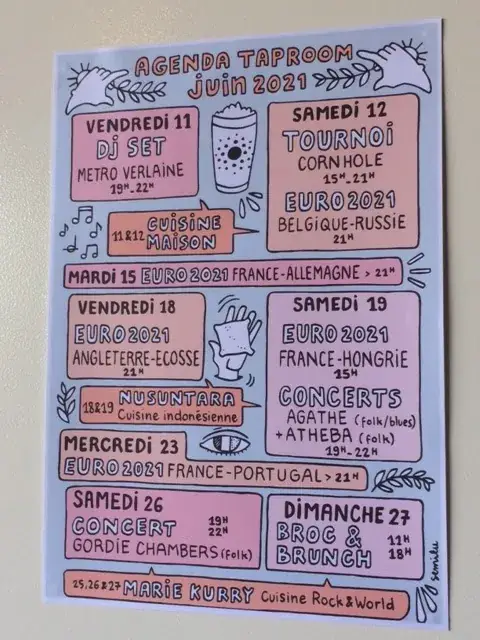 AGENDA TAPROOM
juin 2021
VENDREDI 11
DJ SET
METRO VERLAINE
19H_22H
SAMEDI 12
TOURNOI
CORNHOLE
15H_21H
EURO2021
BELGIQUE-RUSSIE
21H
11&12 CUISINE
MAISON
MARDI 15 EURO 2021 FRANCE-ALLEMAGNE > 21H
VENDREDI 18
EURO 2021
ANGLETERRE-ECOSSE
21H
SAMEDI 19
EURO 2021
FRANCE-HONGRIE
15H
CONCERTS
AGATHE (folk/blues)
+ATHEBA (folk)
19H_22H
18&19 NUSUNTARA
Cuisine indonésienne
MERCREDI 23
EURO 2021 FRANCE-PORTUGAL > 21H
SAMEDI 26
CONCERT 19H
22H
GORDIE CHAMBERS (folk)
DIMANCHE 27
BROC & 11H
BRUNCH 18H
25,26&27 MARIE KURRY Cuisine Rock&World
semilu